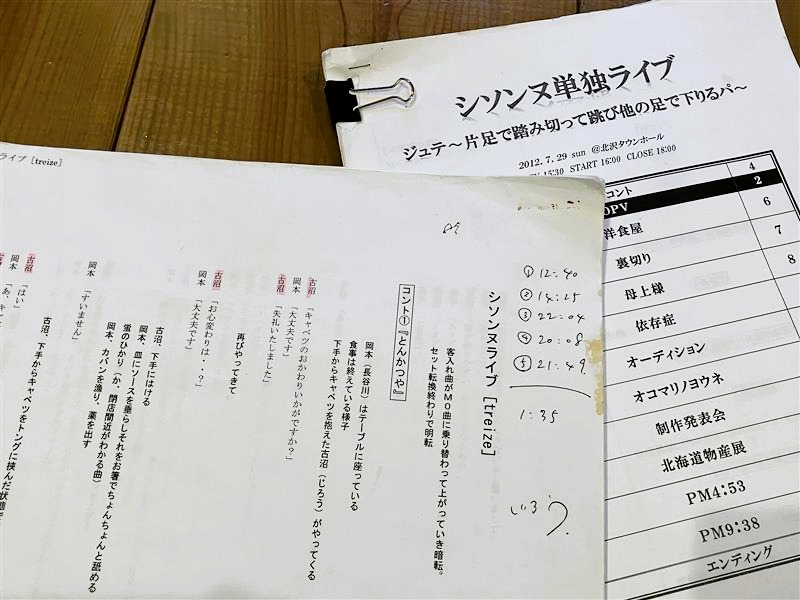 シソンヌ単独ライブ
ジュテ～片足で踏み切って跳び他の足で下りるパ～
2012.7.29 sun @北沢タウンホール
15:30 START 16:00 CLOSE 18:00
コント
4
OPV
2
洋食屋
6
裏切り
7
母上様
8
依存症
オーティション
オコマリノヨウネ
制作発表会
北海道物産展
PM4:53
PM9:38
エンティング
ライブ [treize]
① 12:40
② 14:25
③ 22:04
④ 20:08
⑤ 21:49
1:35
じろう
シソンヌライブ [treize]
客入れ曲がMO曲に乗り替わって上がっていき暗転。
セット転換終わりで明転
コント①『とんかつや』
岡本（長谷川）はテーブルに座っている
食事は終えている様子
下手からキャベツを抱えた古沼（じろう）がやってくる
古沼「キャベツのおかわりいかがですか？」
岡本「大丈夫です」
古沼「失礼いたしました」
再びやってきて
古沼「お心変わりは・・？」
岡本「大丈夫です」
古沼、下手にはける
岡本、皿にソースを垂らしそれをお箸でちょんちょんと舐める
蛍のひかり（か、閉店間近がわかる曲）
岡本、カバンを漁り、薬を出す
岡本「すいません」
古沼、下手からキャベツをトングに挟んだ状態で
古沼「はい」
岡本「あ、